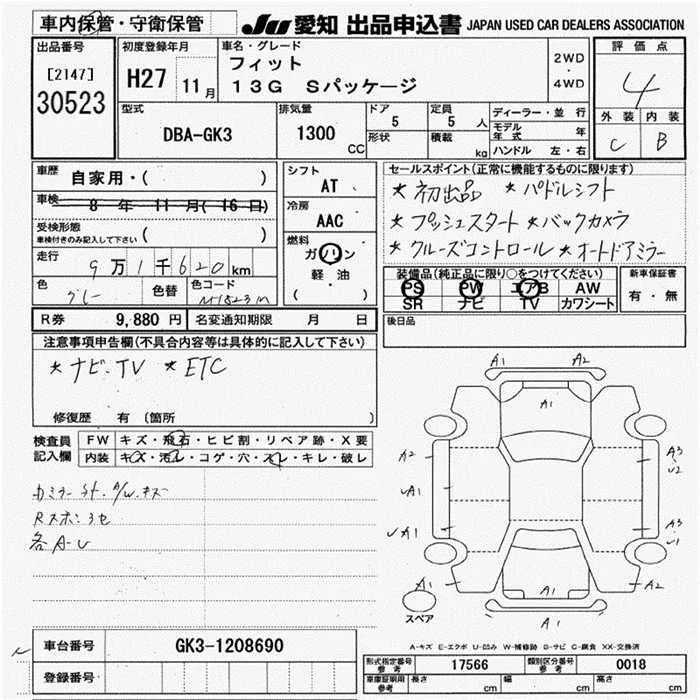 車内保管・守衛保管
JU 愛知 出品申込書 JAPAN USED CAR DEALERS ASSOCIATION
出品番号
[2147]
30523
初度登録年月
H27 11月
車名・グレード
フィット
13G Sパッケージ
2WD
・
4WD
評価点
4
外装 内装
C B
型式
DBA-GK3
排気量
1300 CC
ドア
5
形状
定員
5 人
積載
kg
ディーラー・並行
モデル年式 年
ハンドル 左・右
車歴
自家用・( )
車検
8 年 11 月( 16 日)
受検形態
車検付きのみ記入して下さい
( )
走行
9万1千620km
色
グレー
色替
色コード
シフト
AT
冷房
AAC
燃料
ガソリン
軽・油
( )
セールスポイント(正常に機能するものに限ります)
* 初出品 * パドルシフト
* プッシュスタート * バックカメラ
* クルーズコントロール * オートドアミラー
装備品(純正品に限り○をつけてください)
PS PW エアB AW
SR ナビ TV カワシート
新車保証書
有・無
R券 9,880 円 名変通知期限 月 日
後日品
注意事項申告欄(不具合内容等は具体的に記入して下さい)
* ナビ・TV * ETC
修復歴 有(箇所 )
検査員
記入欄
FW キズ・飛石・ヒビ割・リペア跡・X要
内装 キズ・汚レ・コゲ・穴・スレ・キレ・破レ
各A-U
A1 A2
A1
A2 A3
U2
A1
A1 A3
U1
A1 A1 A2
A1
スペア
A-キズ E-エクボ U-凹み W-補修跡 B-サビ C-腐食 XX-交換済
車台番号 GK3-1208690
登録番号
形式指定番号
参考
17566
類別区分番号
参考
0018
車庫証明用
参考
長さ cm 幅 cm 高さ cm